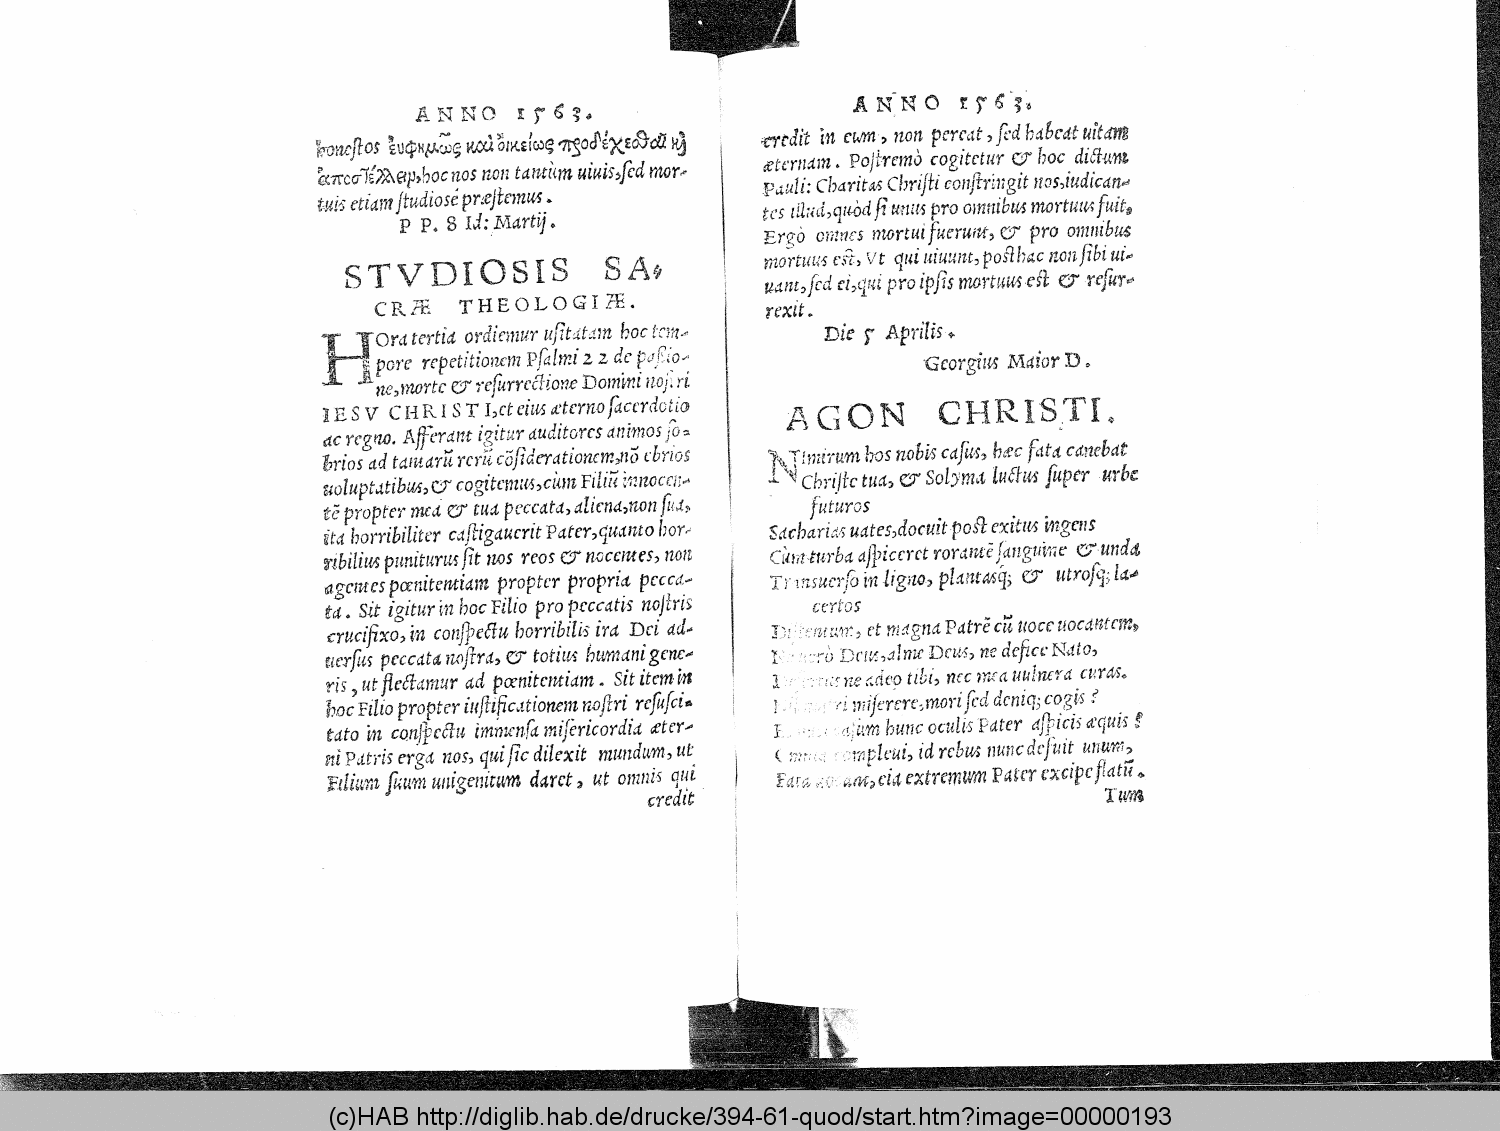 ANNO 1563.
honeſtos ἐυφήμως καὶ ὀικείως προσέχεσθαι κỳ
hoc nos non tantùm uiuis, ſed mor-
tuis etiam ſtudiosé præſtemus.
P P. 8 Id: Martij.
STVDIOSIS SA-
CRÆ THEOLOGIÆ.
HOra tertia ordiemur uſitatam hoc tem-
pore repetitionem Pſalmi 22 de paſsio-
ne, morte & reſurrectione Domini noſtri
IESV CHRISTI, et eius æterno ſacerdotio
ac regno. Afferant igitur auditores animos ſo-
brios ad tantarũ rerũ cõſiderationem, nõ ebrios
uoluptatibus, & cogitemus, cùm Filiũ innocen-
tẽ propter mea & tua peccata, aliena, non ſua,
ita horribiliter caſtigauerit Pater, quanto hor-
ribilius puniturus ſit nos reos & nocentes, non
agentes pœnitentiam propter propria pecca-
ta. Sit igitur in hoc Filio pro peccatis noſtris
crucifixo, in conſpectu horribilis ira Dei ad-
uerſus peccata noſtra, & totius humani gene-
ris, ut flectamur ad pœnitentiam. Sit item in
hoc Filio propter iuſtificationem noſtri reſuſci-
tato in conſpectu immenſa miſericordia æter-
ni Patris erga nos, qui ſic dilexit mundum, ut
Filium ſuum unigenitum daret, ut omnis qui
credit
ANNO 1563.
credit in eum, non pereat, ſed habeat uitam
æternam. Poſtremò cogitetur & hoc dictum
Pauli: Charitas Chriſti conſtringit nos, iudican-
tes illud, quòd ſi unus pro omnibus mortuus fuit,
Ergò omnes mortui fuerunt, & pro omnibus
mortuus eſt, Vt qui uiuunt, poſthac non ſibi ui-
uant, ſed ei, qui pro ipſis mortuus eſt & reſur-
rexit.
Die 5 Aprilis.
Georgius Maior D.
AGON CHRISTI.
NImirum hos nobis caſus, hæc fata canebat
Chriſte tua, & Solyma luctus ſuper urbe
futuros
Sacharias uates, docuit poſt exitus ingens
Cùm turba aſpiceret rorantẽ ſanguine & unda
Transuerſo in ligno, plantasq; & utroſq; la-
certos
et magna Patrẽ cũ uoce uocantem,
Deus, alme Deus, ne defice Nato,
ne adeo tibi, nec mea uulnera curas.
miſerere, mori ſed deniq; cogis?
hunc oculis Pater aſpicis æquis?
compleui, id rebus nunc defuit unum,
Fata eia extremum Pater excipe flatũ.
Tum
(c)HAB http://diglib.hab.de/drucke/394-61-quod/start.htm?image=00000193